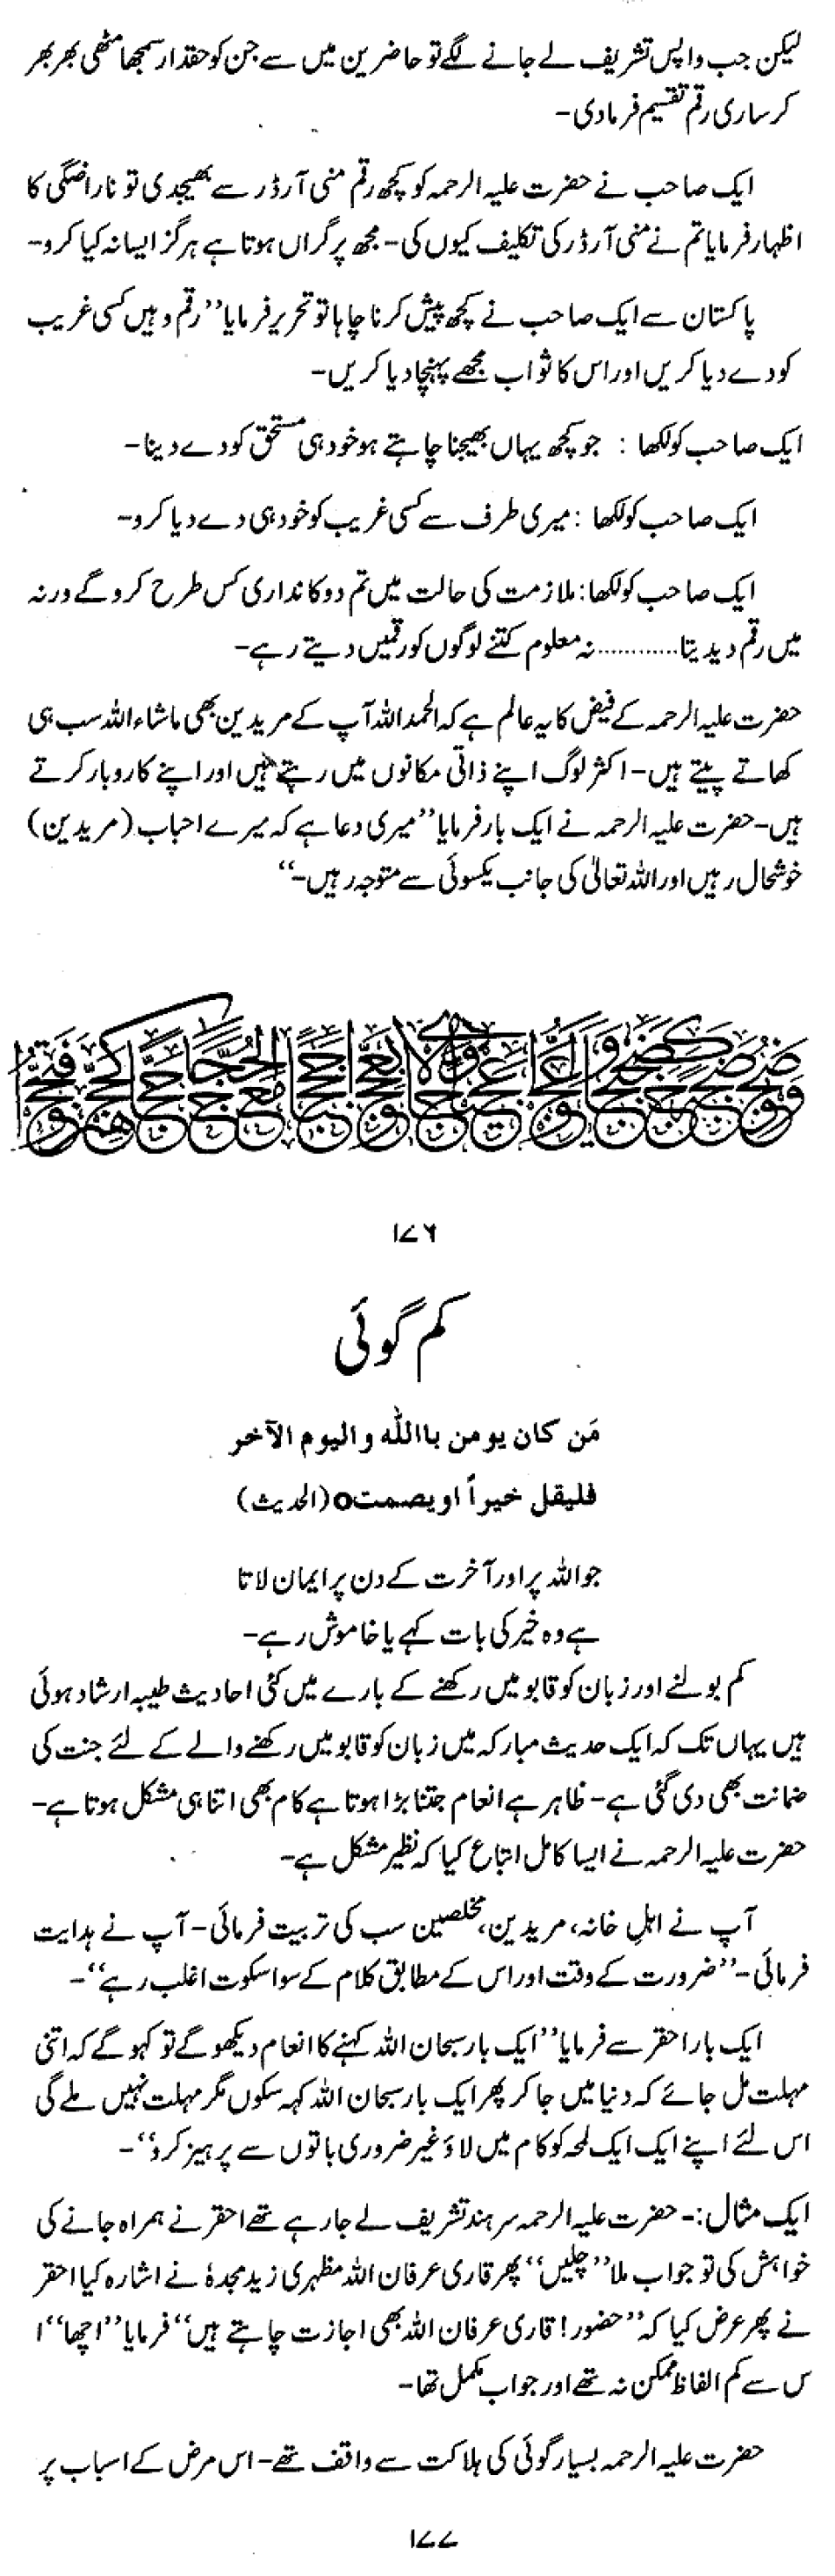 لیکن جب واپس تشریف لے جانے لگے تو حاضرین میں سے جن کو حقدار سمجھا مٹھی بھر بھر
کر ساری رقم تقسیم فرمادی-
ایک صاحب نے حضرت علیہ الرحمہ کو کچھ رقم منی آرڈر سے بھیجدی تو ناراضگی کا
اظہار فرمایا تم نے منی آرڈر کی تکلیف کیوں کی- مجھ پر گراں ہوتا ہے ہرگز ایسا نہ کیا کرو-
پاکستان سے ایک صاحب نے کچھ پیش کرنا چاہا تو تحریر فرمایا ”رقم وہیں کسی غریب
کو دے دیا کریں اور اس کا ثواب مجھے پہنچا دیا کریں-
ایک صاحب کو لکھا : جو کچھ یہاں بھیجنا چاہتے ہو خود ہی مستحق کو دے دینا-
ایک صاحب کو لکھا : میری طرف سے کسی غریب کو خود ہی دے دیا کرو-
ایک صاحب کو لکھا: ملازمت کی حالت میں تم دوکانداری کس طرح کرو گے ورنہ
میں رقم دیدیتا............نہ معلوم کتنے لوگوں کو رقمیں دیتے رہے-
حضرت علیہ الرحمہ کے فیض کا یہ عالم ہے کہ الحمد اللہ آپ کے مریدین بھی ماشاء اللہ سب ہی
کھاتے پیتے ہیں- اکثر لوگ اپنے ذاتی مکانوں میں رہتے ہیں اور اپنے کاروبار کرتے
ہیں- حضرت علیہ الرحمہ نے ایک بار فرمایا ”میری دعا ہے کہ میرے احباب (مریدین)
خوشحال رہیں اور اللہ تعالیٰ کی جانب یکسوئی سے متوجہ رہیں-“
۱۷۶
کم گوئی
مَن کان یومن باالله والیوم الآخر
فلیقل خیراً اویصمت o (الحدیث)
جو اللہ پر اور آخرت کے دن پر ایمان لاتا
ہے وہ خیر کی بات کہے یا خاموش رہے-
کم بولنے اور زبان کو قابو میں رکھنے کے بارے میں کئی احادیث طیبہ ارشاد ہوئی
ہیں یہاں تک کہ ایک حدیث مبارکہ میں زبان کو قابو میں رکھنے والے کے لئے جنت کی
ضمانت بھی دی گئی ہے- ظاہر ہے انعام جتنا بڑا ہوتا ہے کام بھی اتنا ہی مشکل ہوتا ہے-
حضرت علیہ الرحمہ نے ایسا کامل اتباع کیا کہ نظیر مشکل ہے-
آپ نے اہلِ خانہ، مریدین، مخلصین سب کی تربیت فرمائی- آپ نے ہدایت
فرمائی- ”ضرورت کے وقت اور اس کے مطابق کلام کے سوا سکوت اغلب رہے“-
ایک بار احقر سے فرمایا ”ایک بار سبحان اللہ کہنے کا انعام دیکھو گے تو کہو گے کہ اتنی
مہلت مل جائے کہ دنیا میں جا کر پھر ایک بار سبحان اللہ کہہ سکوں مگر مہلت نہیں ملے گی
اس لئے اپنے ایک ایک لمحہ کو کام میں لاؤ غیر ضروری باتوں سے پرہیز کرو“-
ایک مثال:- حضرت علیہ الرحمہ سرہند تشریف لے جارہے تھے احقر نے ہمراہ جانے کی
خواہش کی تو جواب ملا ”چلیں“ پھر قاری عرفان اللہ مظہری زید مجدہٗ نے اشارہ کیا احقر
نے پھر عرض کیا کہ ”حضور! قاری عرفان اللہ بھی اجازت چاہتے ہیں“ فرمایا ”اچھا“ ا
س سے کم الفاظ ممکن نہ تھے اور جواب مکمل تھا-
حضرت علیہ الرحمہ بسیار گوئی کی ہلاکت سے واقف تھے- اس مرض کے اسباب پر
۱۷۷